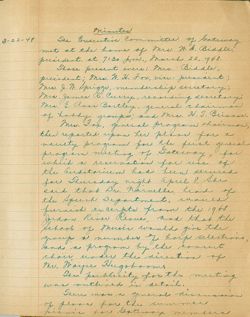 Minutes
3-22-48 The Executive Committee of Gateway
met at the home of Mrs. W. A. Biddle
president at 7:30 p.m., March 22, 1948.
Those present were: Mrs. Biddle,
president; Mrs. W. H. Fox, vice president;
Mrs. J. W. Spriggs, membership secretary;
Mrs. James R. Curry, recording secretary;
Mrs. E. Ann Bartley, general chairman
of hobby groups and Mrs. H. F.
Mrs. Fox, general program chairman,
reported upon her plans for a
variety program for the first general
program meeting of Gateway, for
which a reservation for use of
the Auditorium had been secured
for Thursday night April 8. She
said that Dr. head of
the Speech Department, would
furnish excerpts from the
and that the
School of Music would give the
group a number of harp selections,
and a program by the
under the direction of
Mr. Wayne Hugoboom.
The publicity for the meeting
was outlined in detail.
There was a general discussion
of plans for the summer
for Gateway members